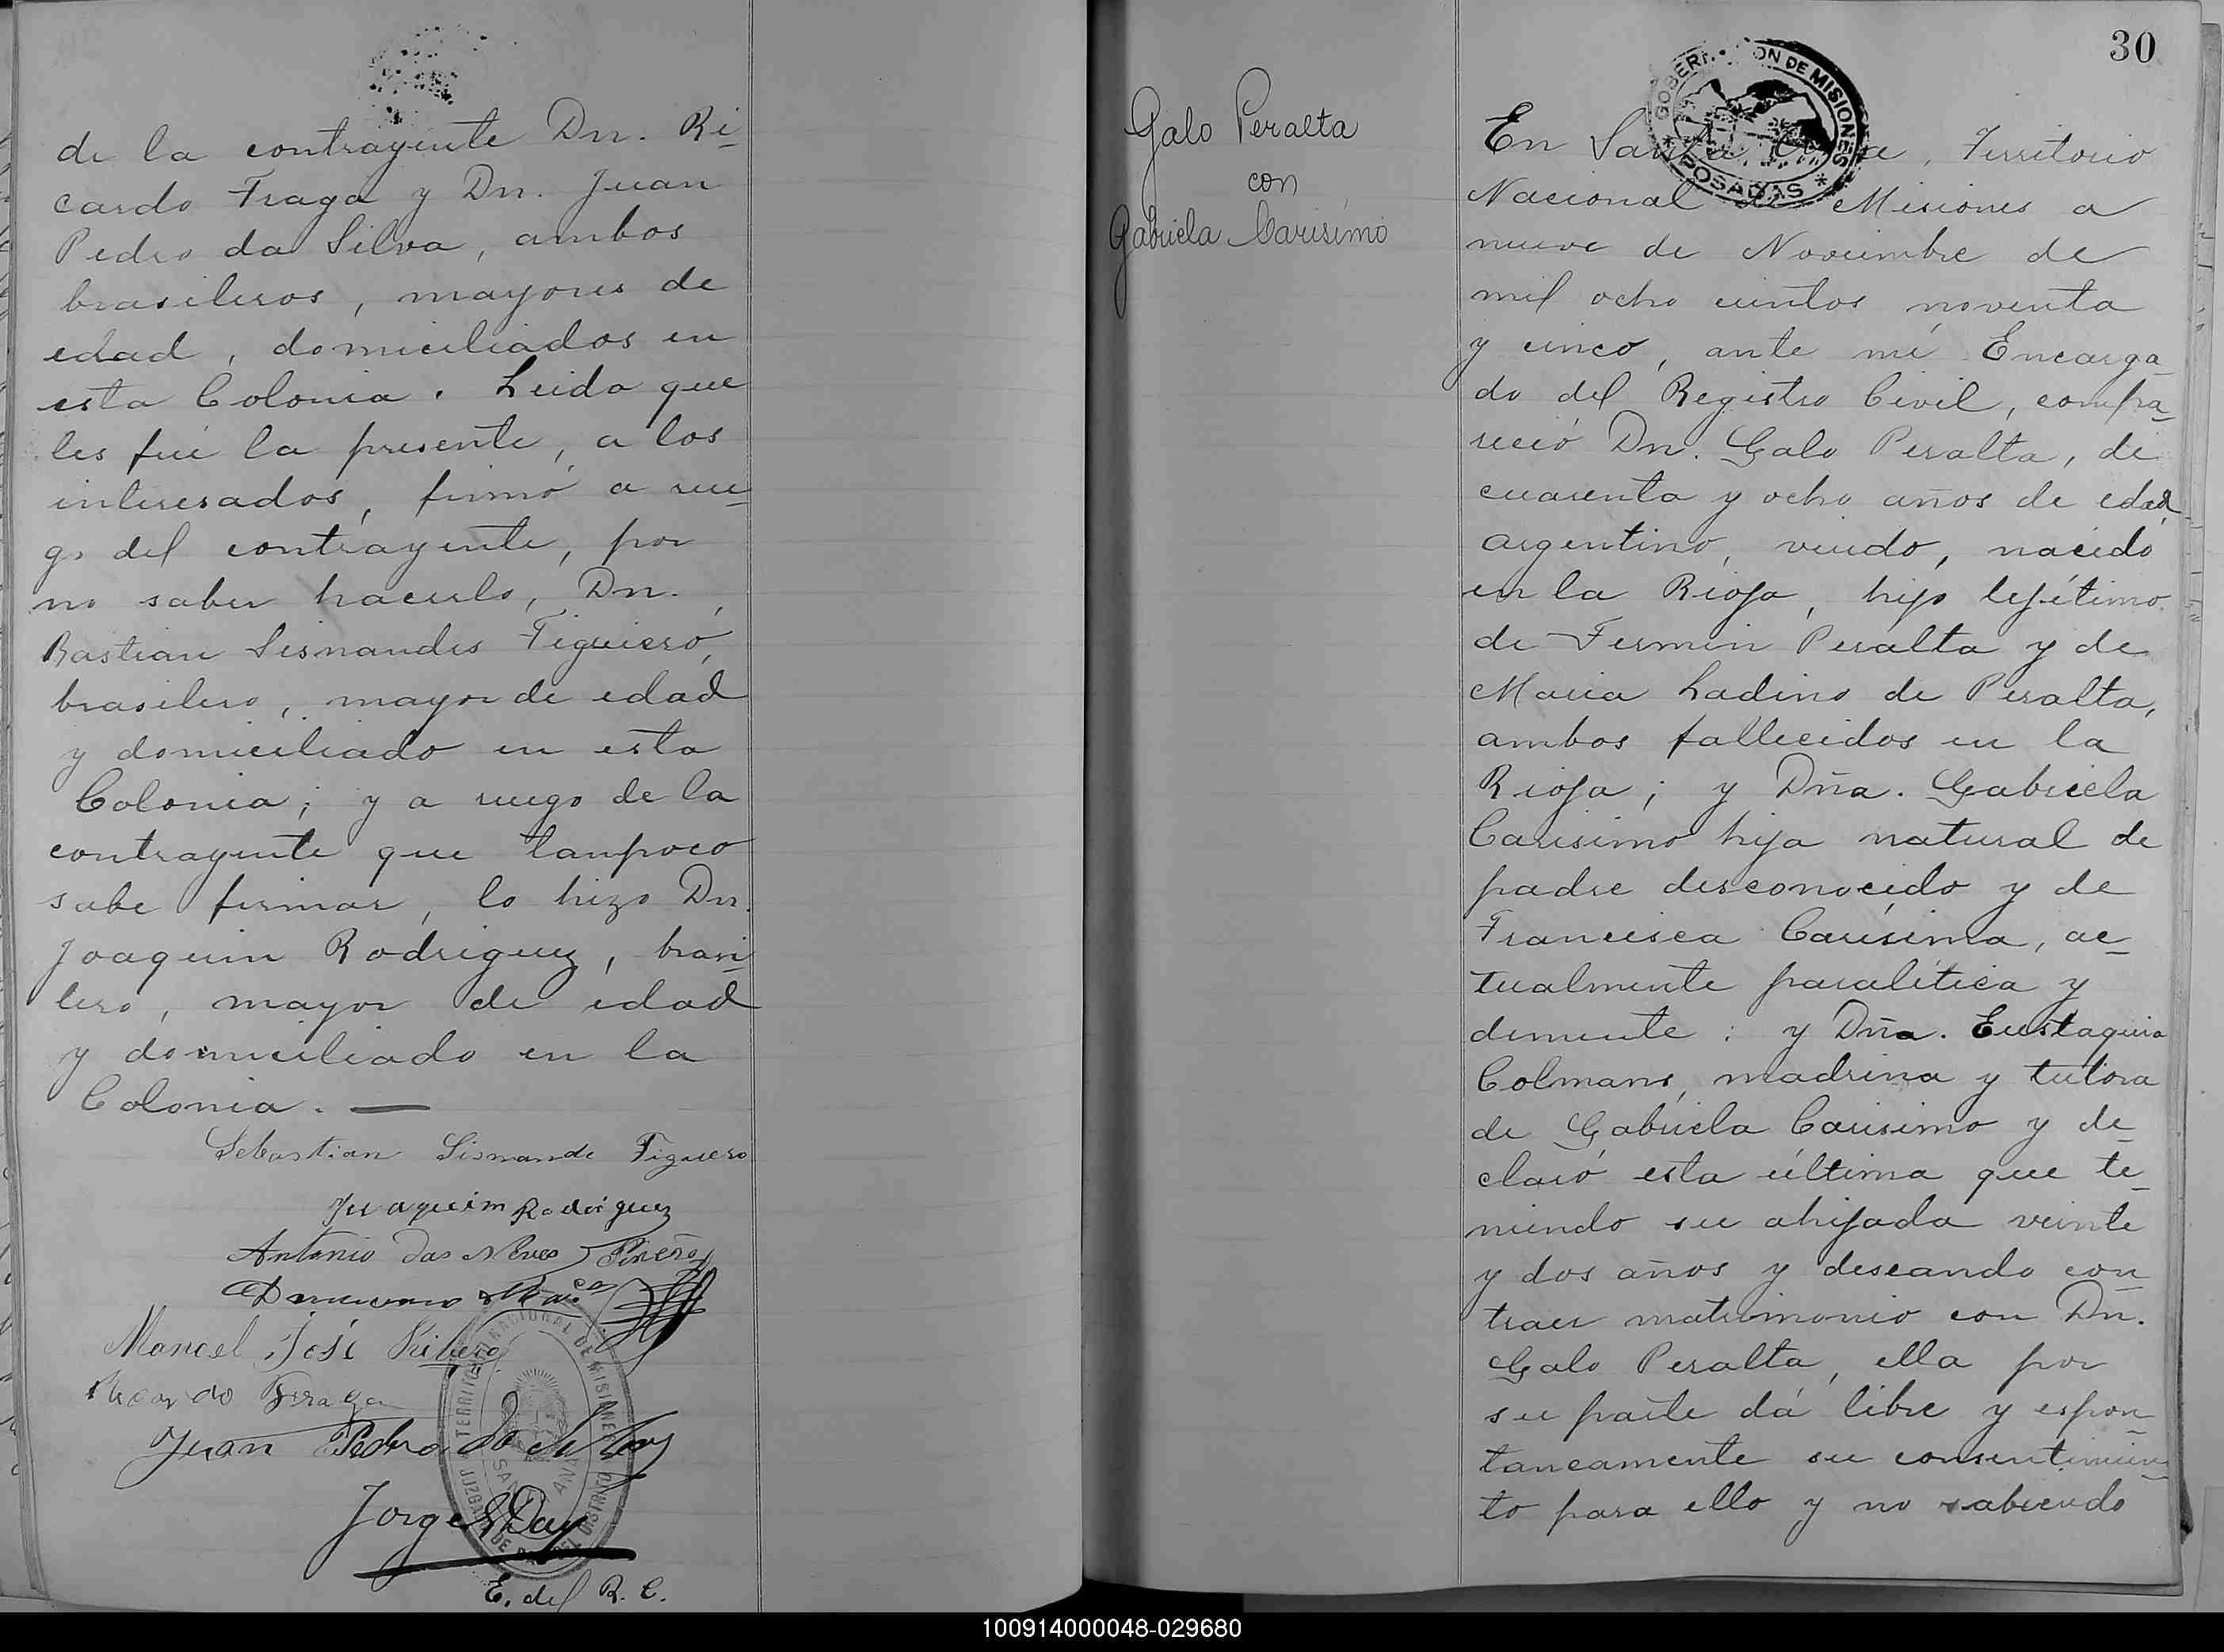 de la contrayente Dn. Ri-
cardo Fraga y Dn. Juan
Pedro da Silva, ambos
brasileros, mayores de
edad, domiciliados en
esta Colonia. Leida que
les fué la presente, a los
interesados, firmó a rue-
go del contrayente, por
no saber hacerlo, Dn.
Bastian Sisnandes Figueiró,
brasilero, mayor de edad
y domiciliado en esta
Colonia; y a ruego de la
contrayente que tampoco
sabe firmar, lo hizo Dn.
Joaquin Rodriguez, brasi-
lero, mayor de edad
y domiciliado en la
Colonia. —
Sebastian Sisnande Figuero
Juaqueim Rodriguez
Antonio das Neves
Manoel José Ribero
Ricardo Fraga
Juan Pedro da Silva
Jorge Day
E. del R. C.
TERRITORIO NACIONAL DE MISIONES
JUZGADO DE PAZ
SANTA ANA
Galo Peralta
con
Gabriela Carisimo
30
GOBERNACION DE MISIONES
* POSADAS *
En Santa Ana, Territorio
Nacional de Misiones a
nueve de Noviembre de
mil ocho cientos noventa
y cinco, ante mi Encarga-
do del Registro Civil, compa-
reció Dn. Galo Peralta, de
cuarenta y ocho años de edad,
argentino, viudo, nacido
en la Rioja, hijo lejítimo
de Fermin Peralta y de
Maria Ladino de Peralta,
ambos fallecidos en la
Rioja; y Dña. Gabriela
Carisimo hija natural de
padre desconocido y de
Francisca Carísima, ac-
tualmente paralítica y
demente: y Dña. Eustaquia
Colmans, madrina y tutora
de Gabriela Carisimo y de-
claró esta última que te-
niendo su ahijada veinte
y dos años y deseando con-
traer matrimonio con Dn.
Galo Peralta, ella por
su parte dá libre y espon-
taneamente su consentimien-
to para ello y no sabiendo
100914000048-029680